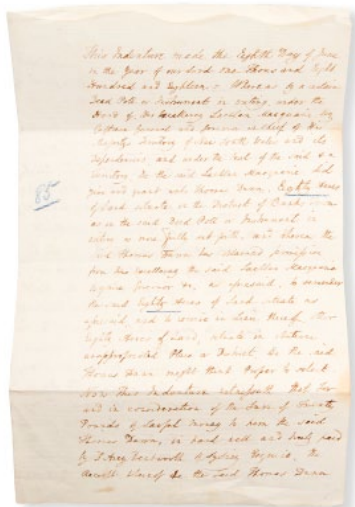 This Indenture made the Eighth Day of June
in the Year of our Lord One Thousand Eight
Hundred and Eighteen Whereas by a certain
Deed Pole or Instrument in writing, under the
Hand of His Excellency Lachlan Macquarie Esq
Captain General and Governor in Chief of His
Majesty's Territory of New South Wales and its
Dependencies and under the Seal of the said
Territory He the said Lachlan Macquarie did
give and grant unto Thomas Dunn, Eighty Acres
of Land situate in the District of
as in the said Deed Pole or Instrument in
writing is more fully set forth, and whereas the
said Thomas Dunn has obtained permission
from his Excellency the said Lachlan Macquarie
Esquire Governor as aforesaid, to surrender
the said Eighty Acres of Land situate as
aforesaid and to receive in lieu thereof other
Eighty Acres of Land, situate in
unappropriated Place or District He the said
Thomas Dunn might think Proper to select
Now this Indenture witnesseth that for
and in consideration of the Sum of
Pounds of Lawful money to him the said
Thomas Dunn, in hand well and truly paid
by D'Arcy Wentworth of Sydney Esquire, the
Receipt whereof He the said Thomas Dunn
85